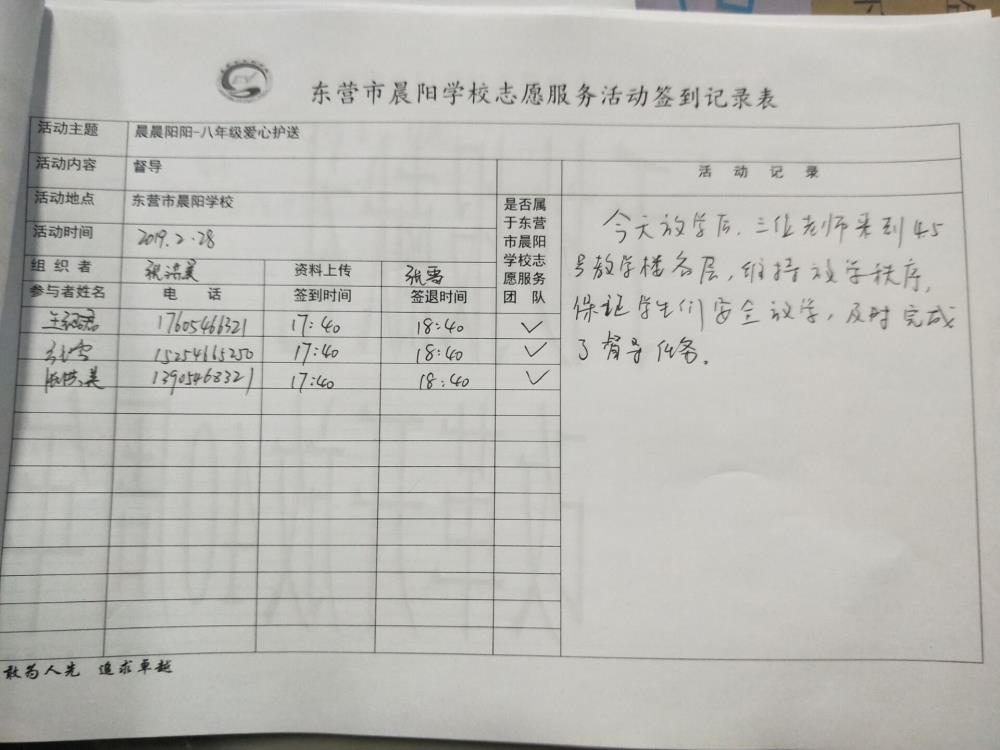 东营市晨阳学校志愿服务活动签到记录表
活动主题 晨晨阳阳-八年级爱心护送
活动内容 督导
活动地点 东营市晨阳学校
活动时间 2019.2.28
组织者 资料上传 张雪
参与者姓名 电话 签到时间 签退时间
是否属
于东营
市晨阳
学校志
愿服务
团队
17605466321 17:40 18:40 ✓
张雪 15254665250 17:40 18:40 ✓
13905468321 17:40 18:40 ✓
活动记录
今天放学后,三位老师来到45
号教学楼各层,维持放学秩序,
保证学生们安全放学,及时完成
了督导任务。
敢为人先 追求卓越